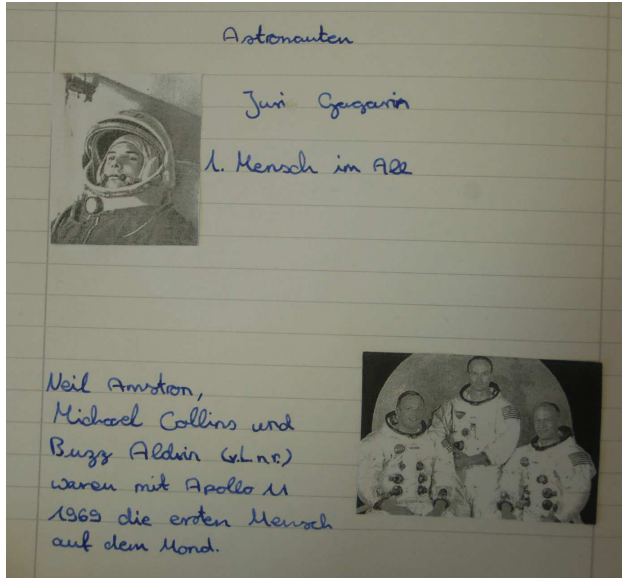 Astronauten
Juri Gagarin
1. Mensch im All
Neil Amstron,
Michael Collins und
Buzz Aldrin (v.l.n.r.)
waren mit Apollo 11
1969 die ersten Mensch
auf dem Mond.